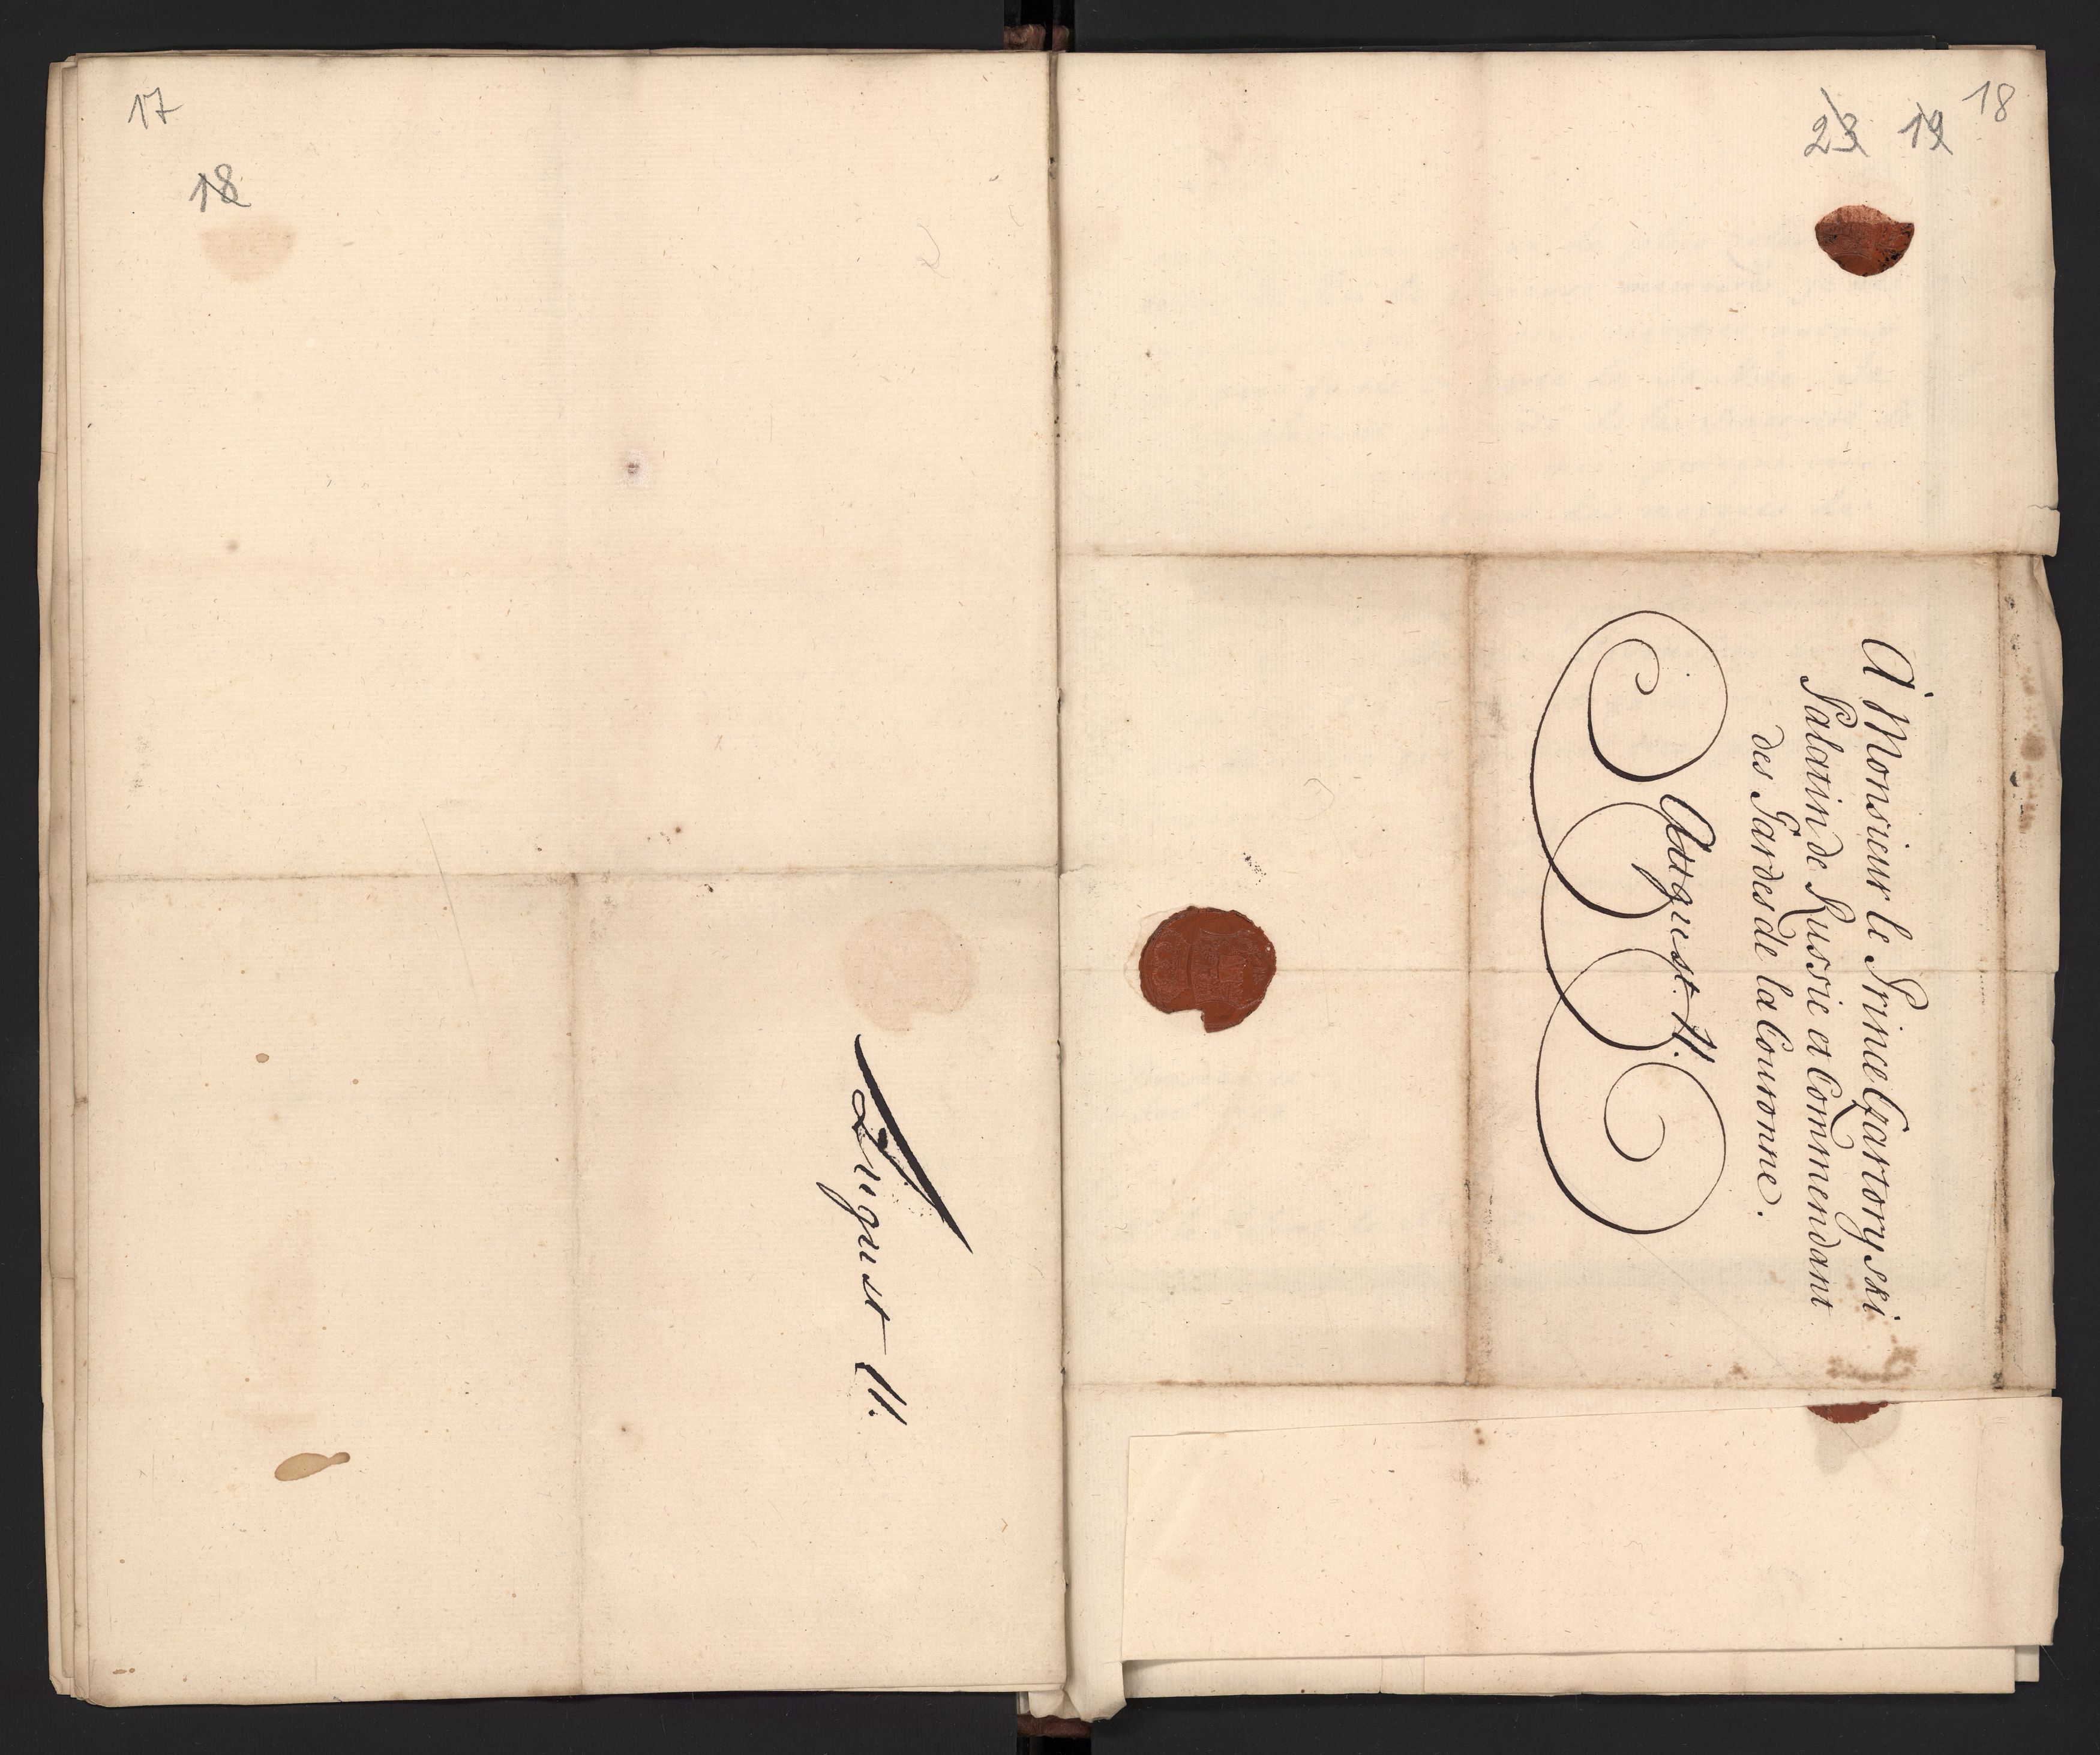 17
18
August II.
23 19 18
A' Monsieur le Prince Czartoryski
Palatin de Russie et Commendant
des Gardes de la Couronne.
August II.